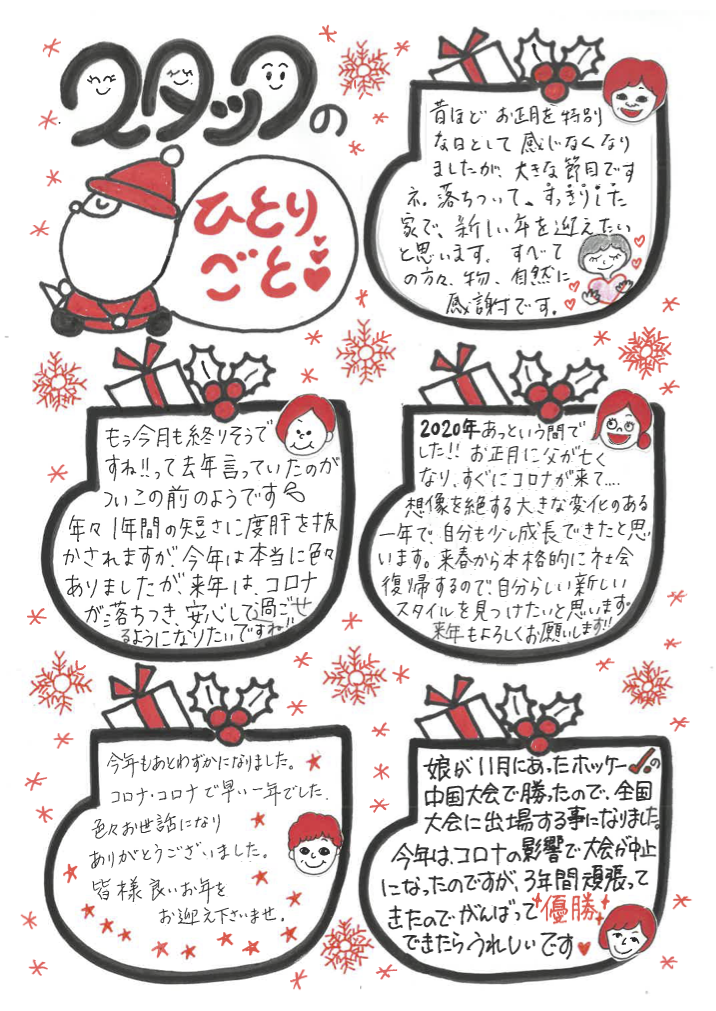 スタッフの
ひとり
ごと
昔ほど お正月を特別
な日として 感じなくなり
ましたが、大きな節目です
ネ。落ちついて、すっきりした
家で、新しい年を迎えたい
と思います。 すべて
の方々、物、自然に
感謝です。
もぅ今月も終りそうで
すね!!って去年言っていたのが
ついこの前のようです
年々1年間の短さに度肝を抜
かされますが、今年は本当に色々
ありましたが、来年は、コロナ
が落ちつき、安心して過ごせ
るようになりたいですね!!
2020年あっという間で
した!! お正月に父が亡く
なり、すぐにコロナが来て....
想像を絶する大きな変化のある
一年で、自分も少し成長できたと思
います。来春から本格的に社会
復帰するので自分らしい新しい
スタイルを見つけたいと思います。
来年もよろしくお願いします!!
今年もあとわずかになりました。
コロナ・コロナで早い一年でした.
色々お世話になり
ありがとうございました。
皆様良いお年を
お迎え下さいませ。
娘が11月にあったホッケーの
中国大会で勝ったので、全国
大会に出場する事になりました。
今年は、コロナの影響で大会が中止
になったのですが、3年間頑張って
きたのでがんばって優勝
できたらうれしいです